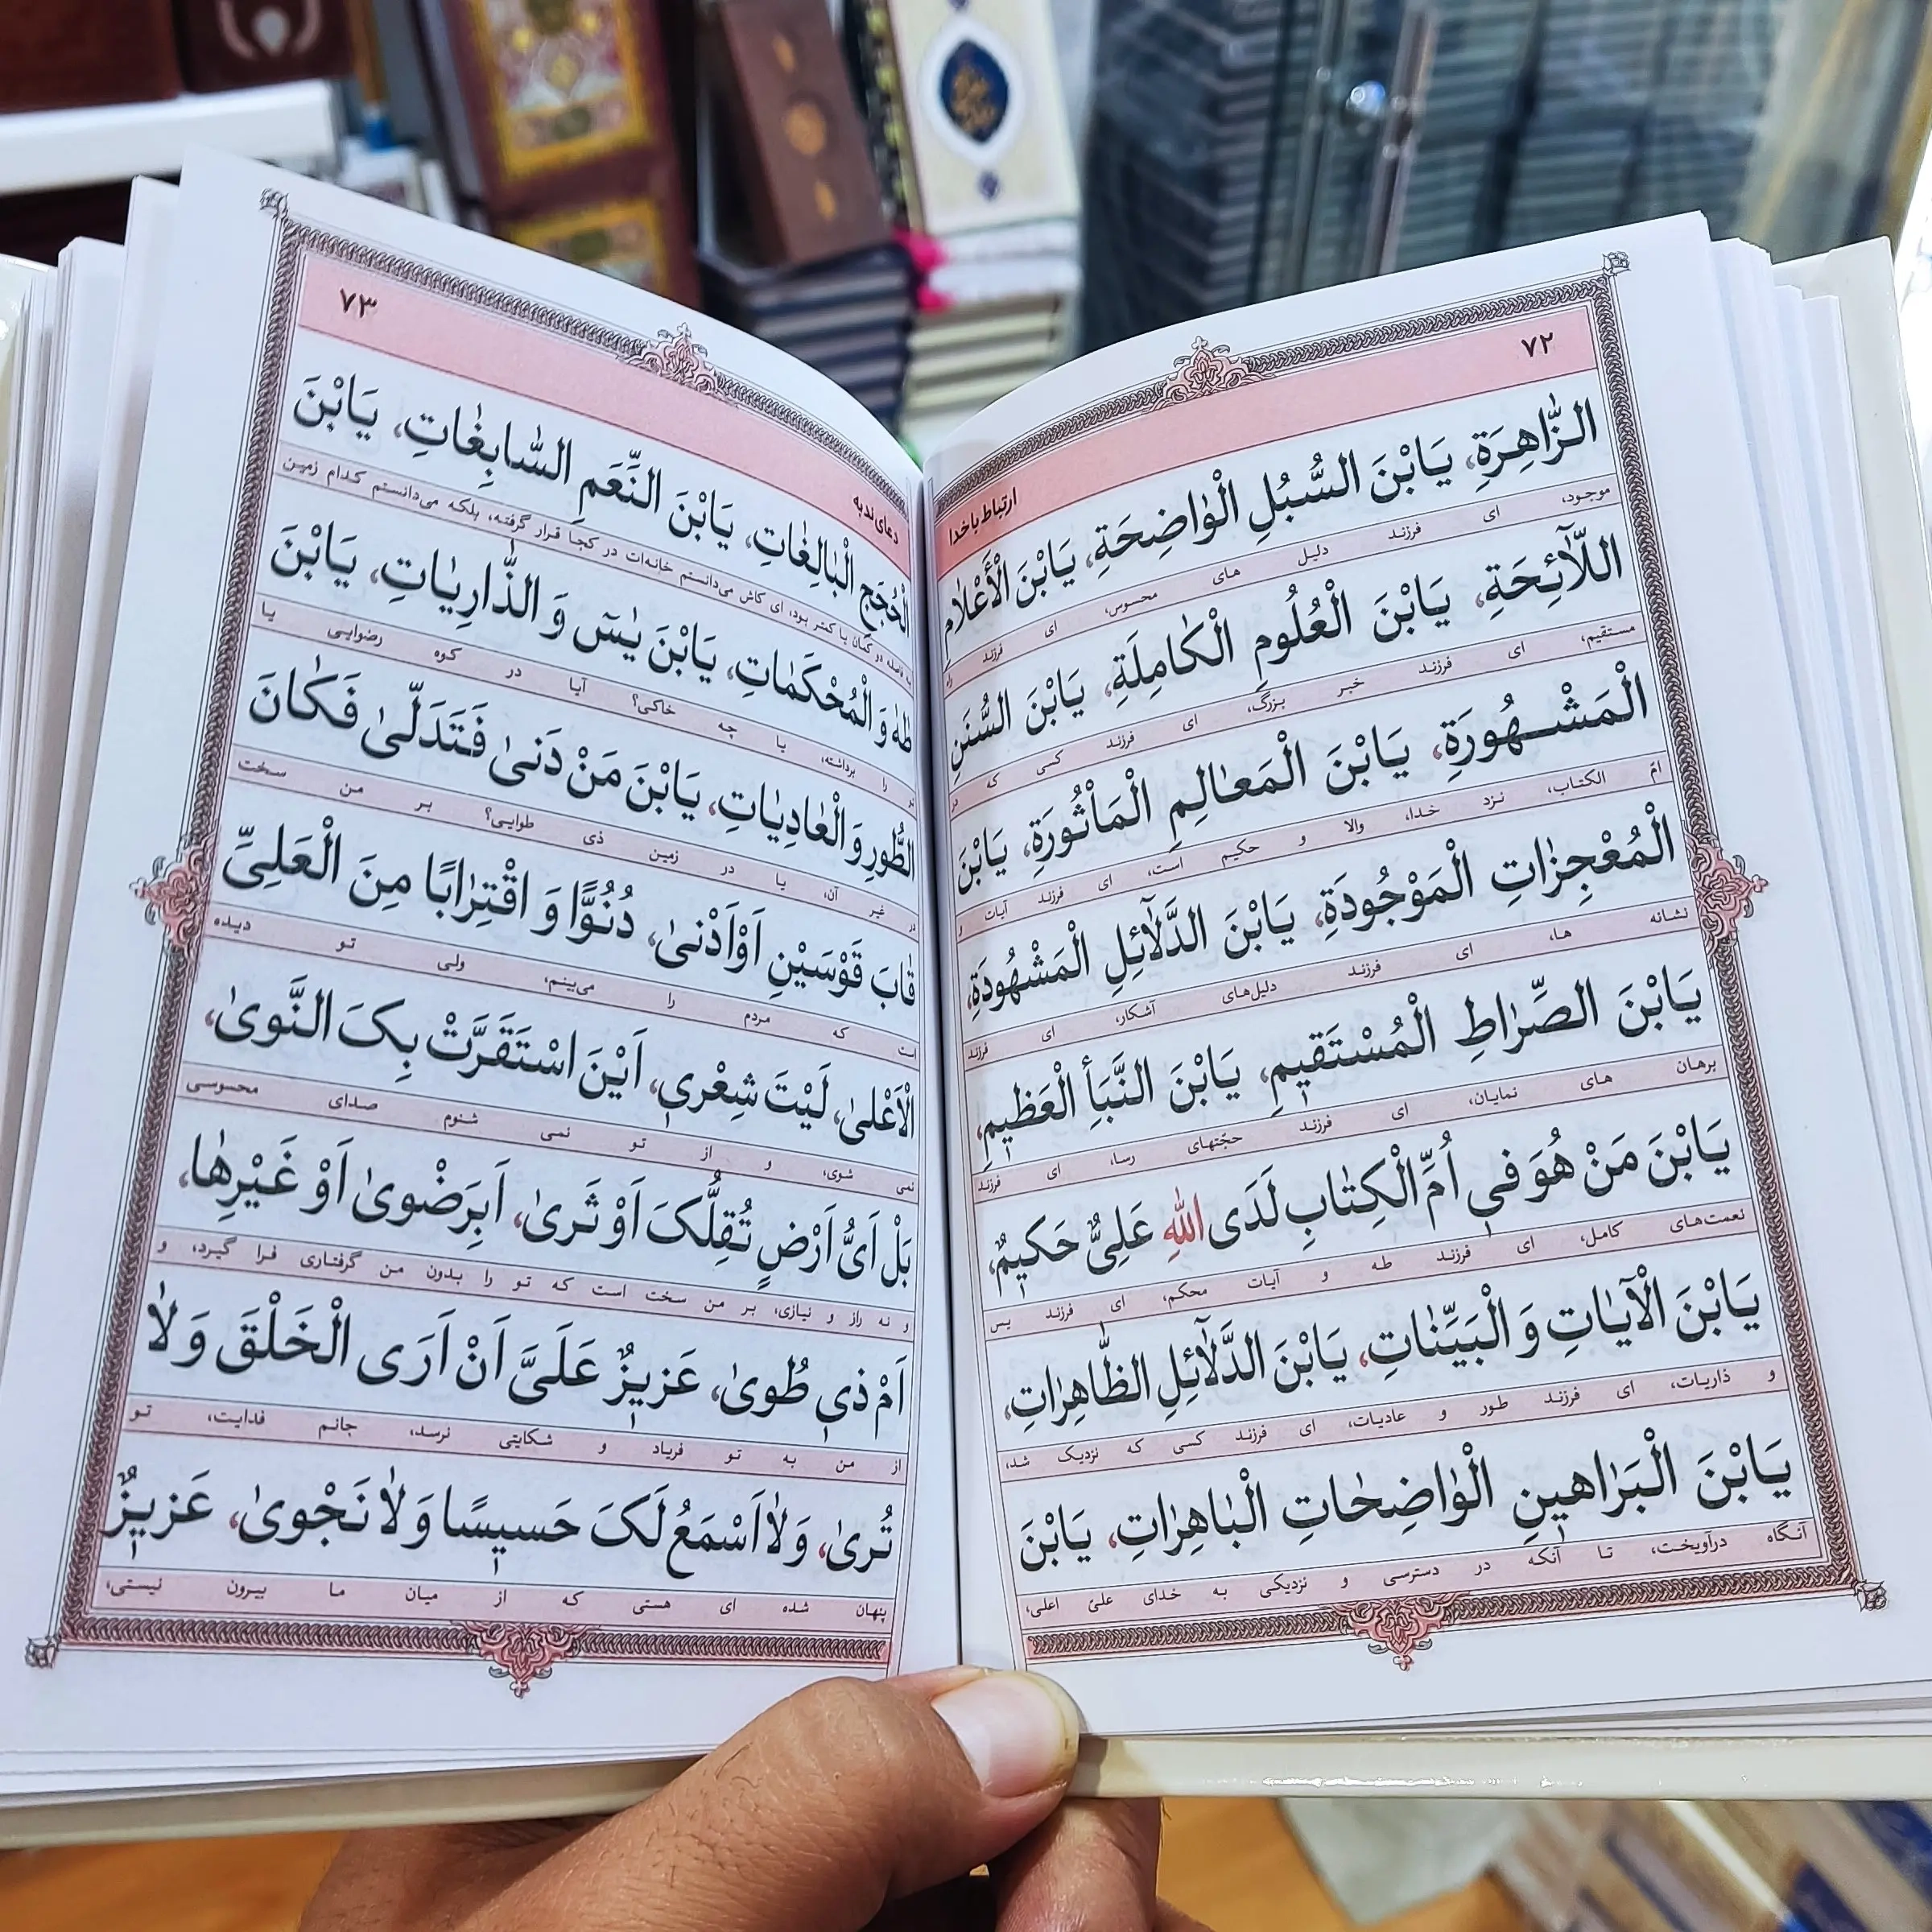 ۷۲
ارتباط با خدا
الزّٰاهِرَةِ، يَابْنَ السُّبُلِ الْوٰاضِحَةِ، يَابْنَ الْأَعْلٰامِ
موجود، ای فرزند دلیل های محسوس، ای فرزند راه
اللّٰآئِحَةِ، يَابْنَ الْعُلُومِ الْكٰامِلَةِ، يَابْنَ السُّنَنِ
مستقیم، ای فرزند خبر بزرگ، ای فرزند کسی که در
الْمَشْهُورَةِ، يَابْنَ الْمَعٰالِمِ الْمَاْثُورَةِ، يَابْنَ
امّ الکتاب، نزد خدا، والا و حکیم است، ای فرزند آیات و
الْمُعْجِزٰاتِ الْمَوْجُودَةِ، يَابْنَ الدَّلٰآئِلِ الْمَشْهُودَةِ،
نشانه ها، ای فرزند دلیل‌های آشکار، ای فرزند
يَابْنَ الصِّرٰاطِ الْمُسْتَقيمِ، يَابْنَ النَّبَأِ الْعَظيمِ،
برهان های نمایان، ای فرزند حجّتهای رسا، ای فرزند
يَابْنَ مَنْ هُوَ في اُمِّ الْكِتٰابِ لَدَى اللّٰهِ عَلِيٌّ حَكيمٌ،
نعمت‌های کامل، ای فرزند طه و آیات محکم، ای فرزند یس
يَابْنَ الْآيٰاتِ وَ الْبَيِّنٰاتِ، يَابْنَ الدَّلٰآئِلِ الظّٰاهِرٰاتِ،
و ذاریات، ای فرزند طور و عادیات، ای فرزند کسی که نزدیک شد،
يَابْنَ الْبَرٰاهينِ الْوٰاضِحٰاتِ الْبٰاهِرٰاتِ، يَابْنَ
آنگاه درآویخت، تا آنکه در دسترسی و نزدیکی به خدای علیّ اعلی،
۷۳
دعای ندبه
الْحُجَجِ الْبٰالِغٰاتِ، يَابْنَ النِّعَمِ السّٰابِغٰاتِ، يَابْنَ
فاصله دو کمان یا کمتر بود، ای کاش می‌دانستم خانه‌ات در کجا قرار گرفته، بلکه می‌دانستم کدام زمین
طٰهٰ وَ الْمُحْكَمٰاتِ، يَابْنَ يٰسٓ وَ الذّٰارِيٰاتِ، يَابْنَ
تو را برداشته، یا چه خاکی؟ آیا در کوه رضوایی یا
الطُّورِ وَ الْعٰادِيٰاتِ، يَابْنَ مَنْ دَنىٰ فَتَدَلّىٰ فَكٰانَ
در غیر آن، یا در زمین ذی طوایی؟ بر من سخت
قٰابَ قَوْسَيْنِ اَوْ اَدْنىٰ، دُنُوًّا وَ اقْتِرٰابًا مِنَ الْعَلِيِّ
است که مردم را می‌بینم، ولی تو دیده
الْاَعْلىٰ، لَيْتَ شِعْري، اَيْنَ اسْتَقَرَّتْ بِكَ النَّوىٰ،
نمی شوی، و از تو نمی شنوم صدای محسوسی
بَلْ اَيُّ اَرْضٍ تُقِلُّكَ اَوْ ثَرىٰ، اَبِرَضْوىٰ اَوْ غَيْرِهٰا،
و نه راز و نیازی، بر من سخت است که تو را بدون من گرفتاری فرا گیرد، و
اَمْ ذي طُوىٰ، عَزيزٌ عَلَيَّ اَنْ اَرَى الْخَلْقَ وَ لٰا
از من به تو فریاد و شکایتی نرسد، جانم فدایت، تو
تُرىٰ، وَ لٰا اَسْمَعُ لَكَ حَسيسًا وَ لٰا نَجْوىٰ، عَزيزٌ
پنهان شده ای هستی که از میان ما بیرون نیستی،